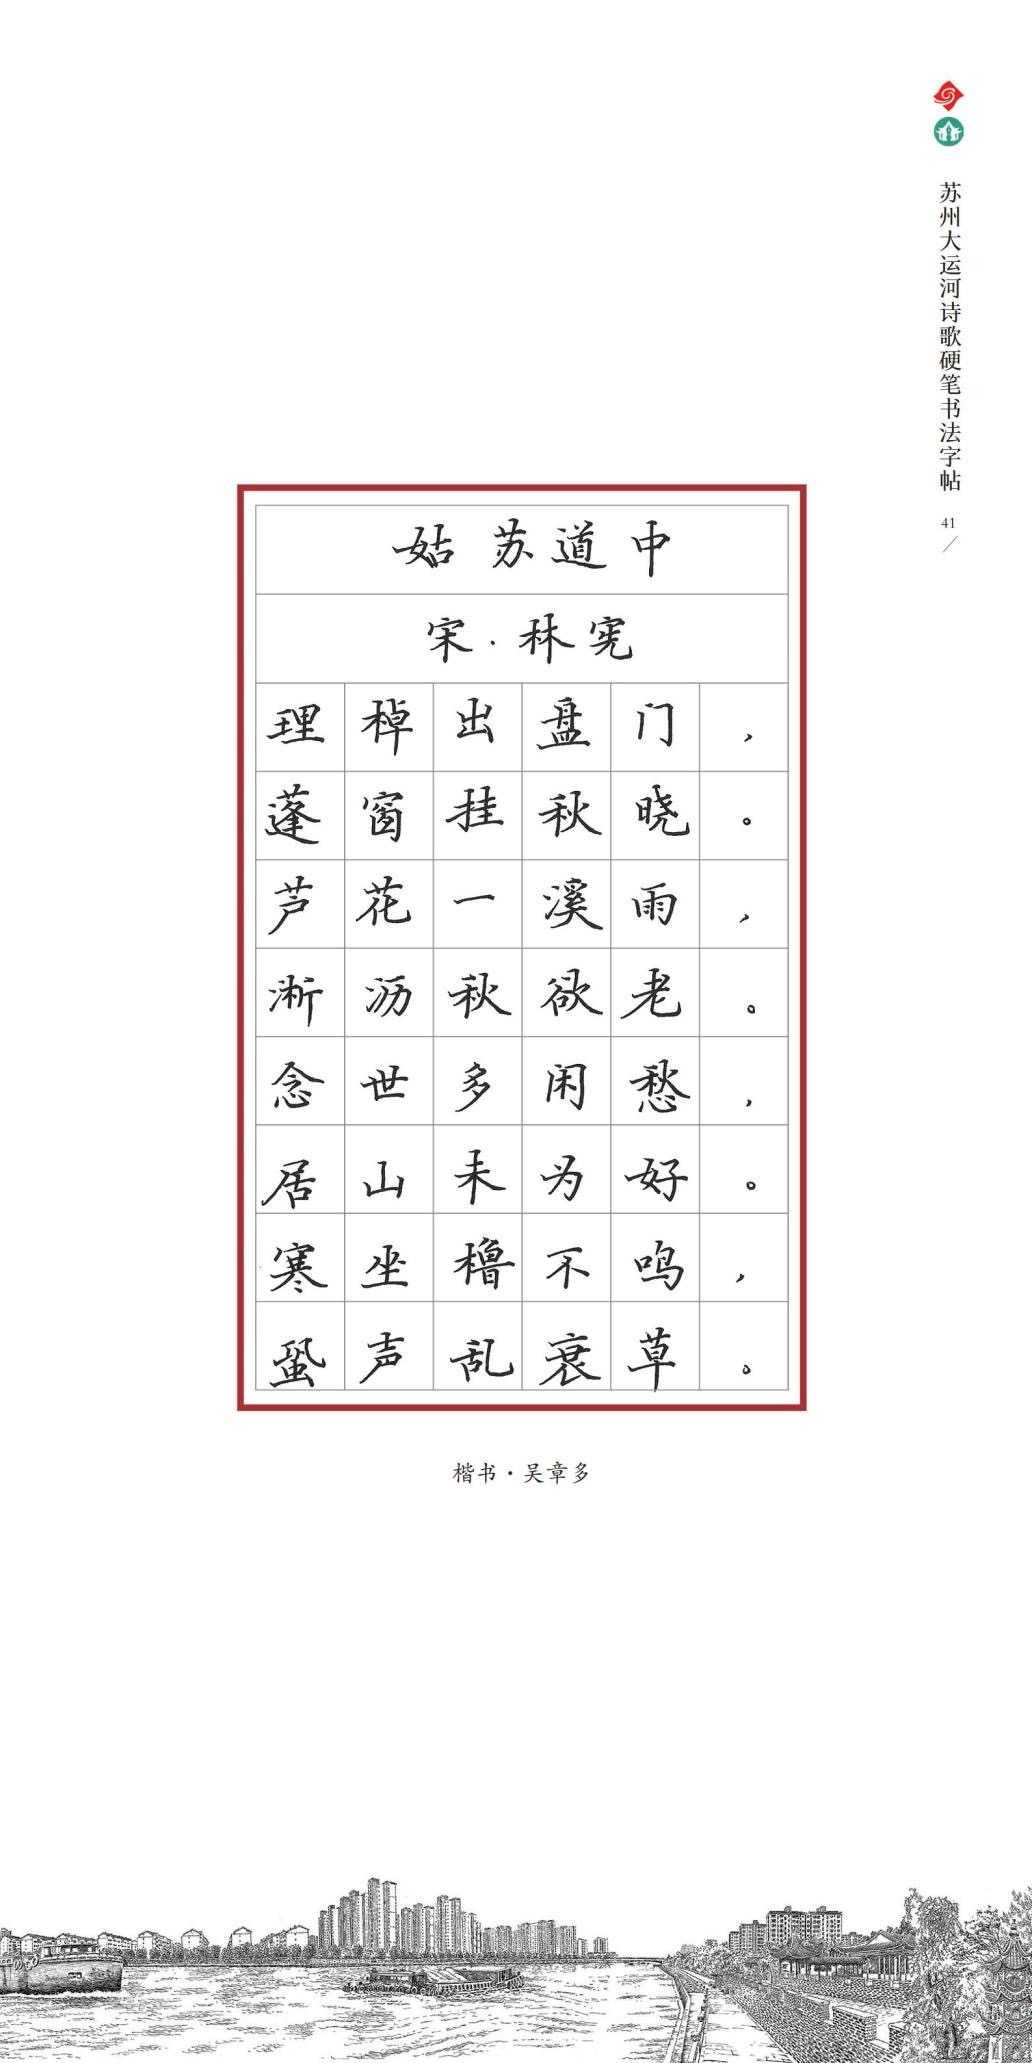 苏州大运河诗歌硬笔书法字帖
41
姑苏道中
宋·林宪
理棹出盘门，
蓬窗挂秋晓。
芦花一溪雨，
淅沥秋欲老。
念世多闲愁，
居山未为好。
寒坐橹不鸣，
蛩声乱衰草。
楷书·吴章多